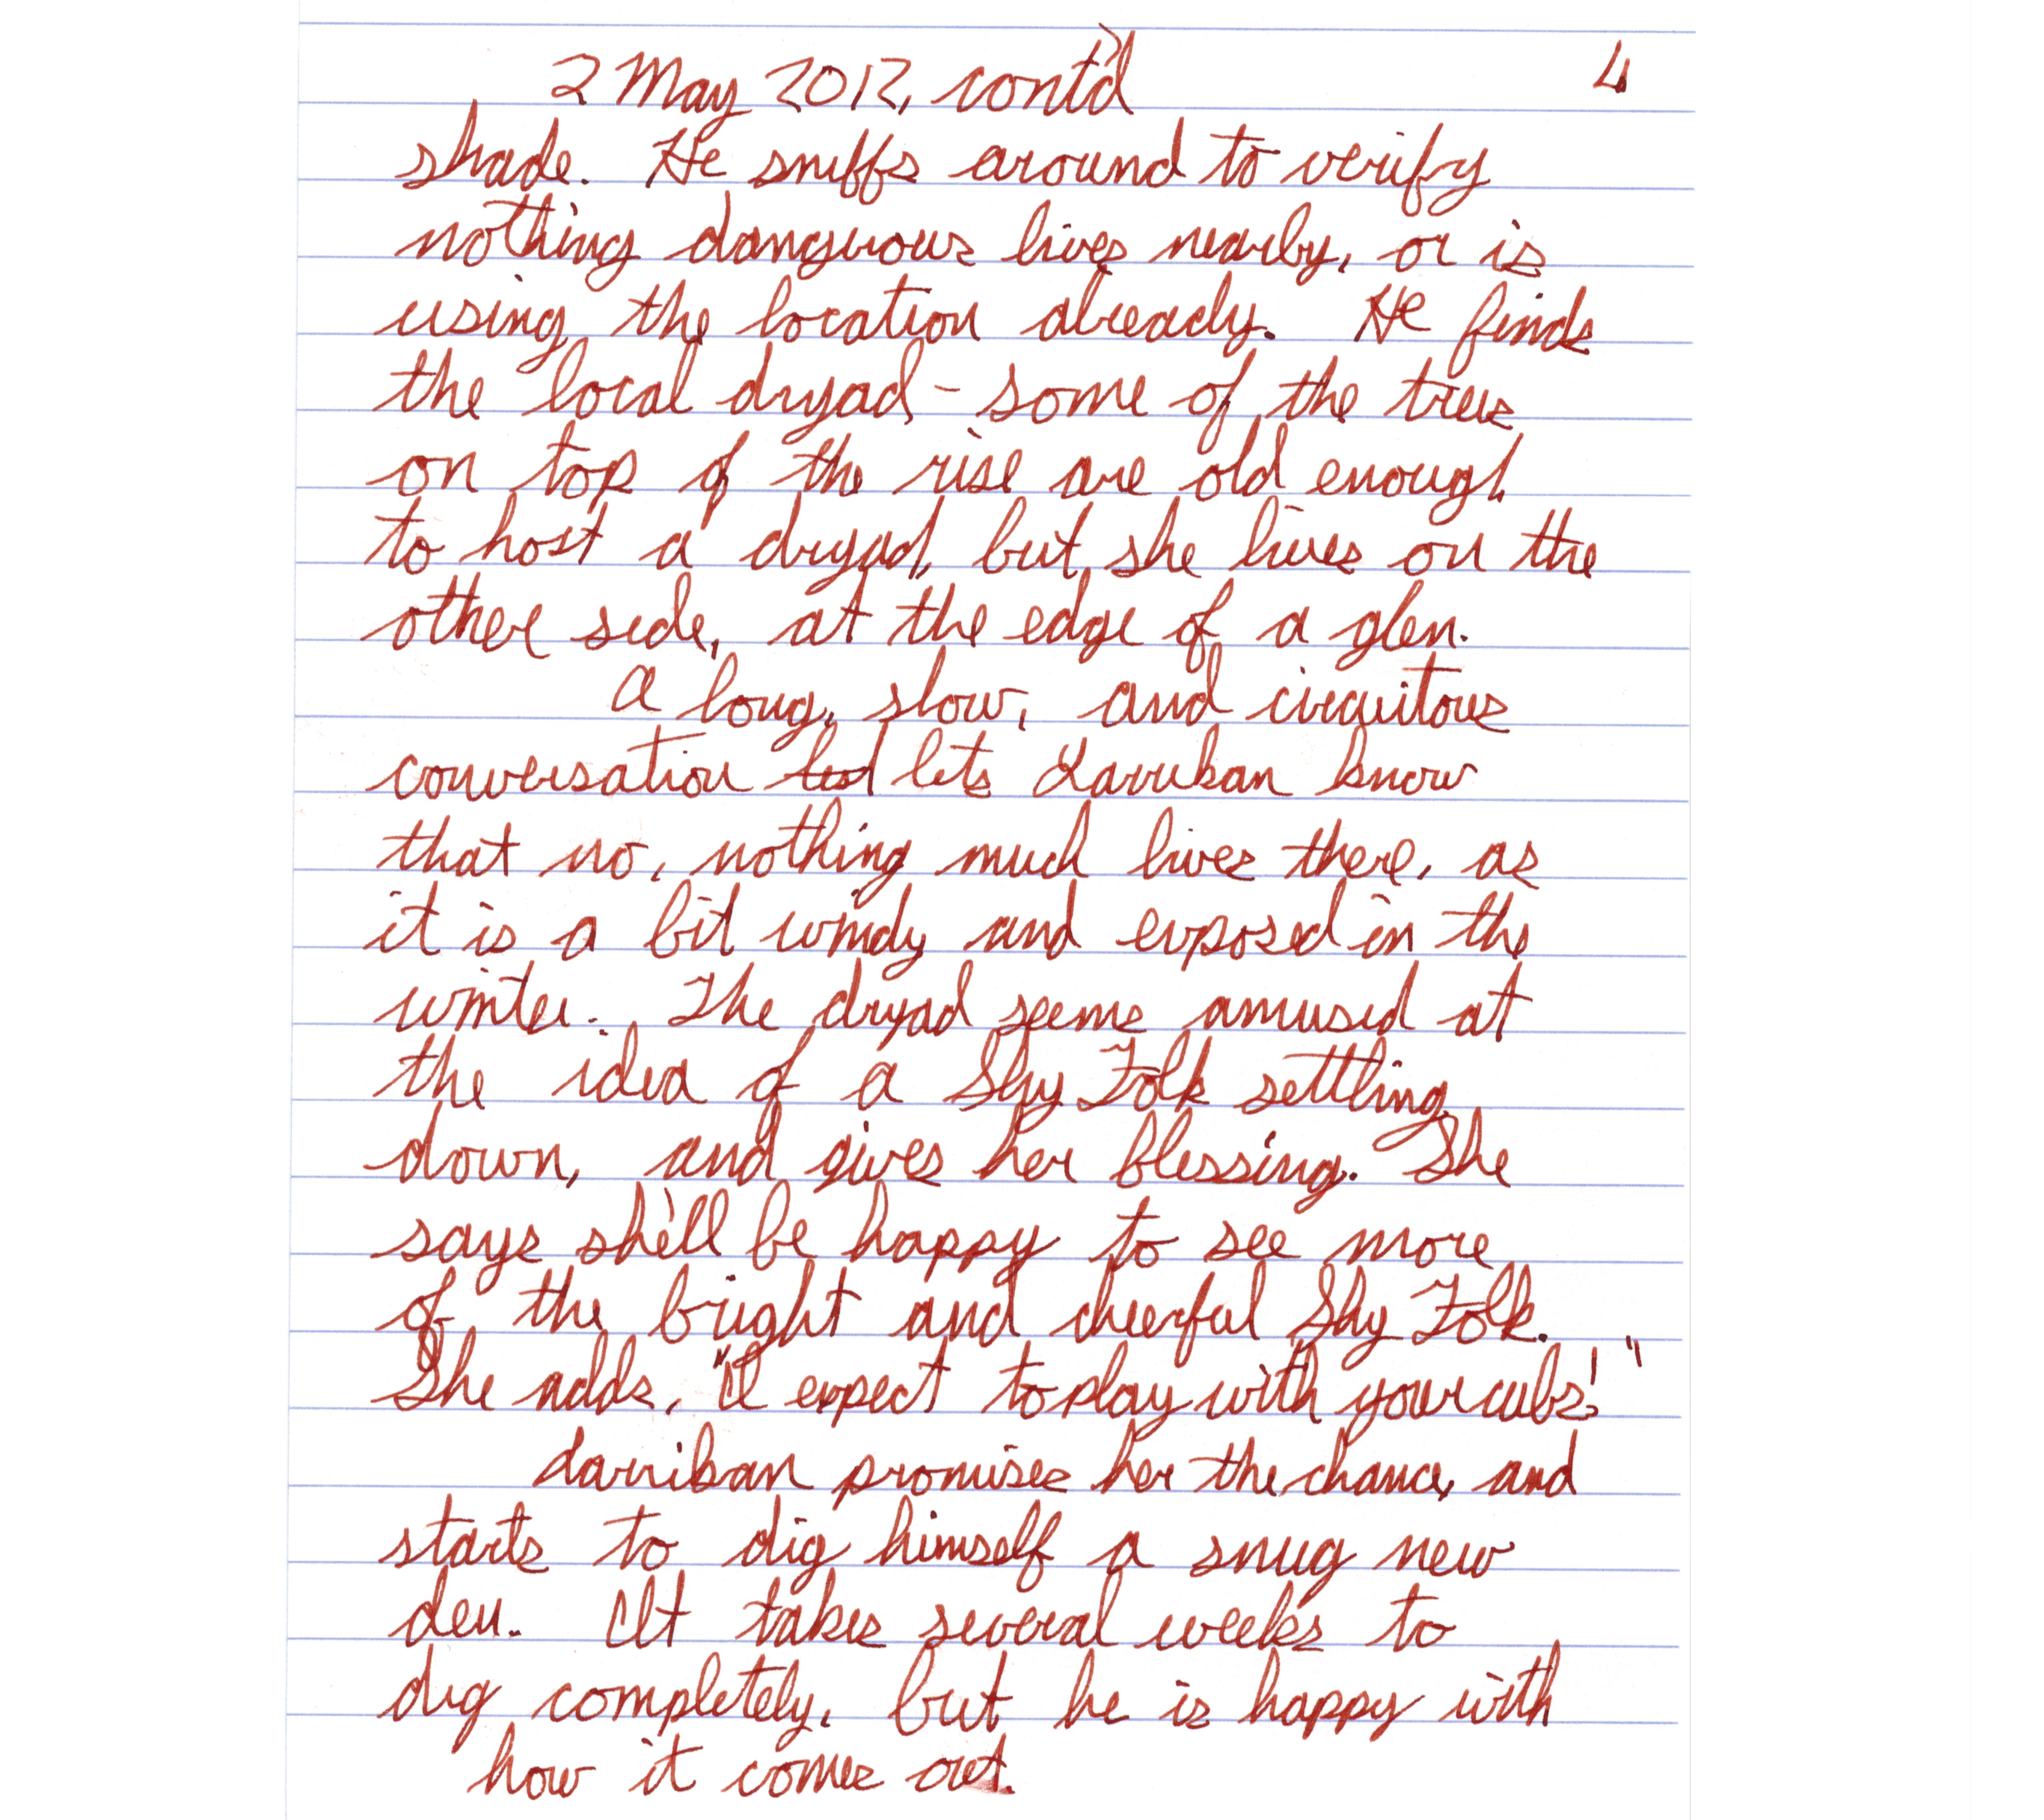 2 May 2012, cont'd 4
shade. He sniffs around to verify
nothing dangerous lives nearby, or is
using the location already. He finds
the local dryad - some of the trees
on top of the rise are old enough
to host a dryad, but she lives on the
other side, at the edge of a glen.
A long, slow, and circuitous
conversation led lets Larriban know
that no, nothing much lives there, as
it is a bit windy and exposed in the
winter. The dryad seems amused at
the idea of a Shy Folk settling
down, and gives her blessing. She
says she'll be happy to see more
of the bright and cheerful Shy Folk.
She adds, "I expect to play with your cubs!"
Larriban promises her the chance, and
starts to dig himself a snug new
den. It takes several weeks to
dig completely, but he is happy with
how it comes out.